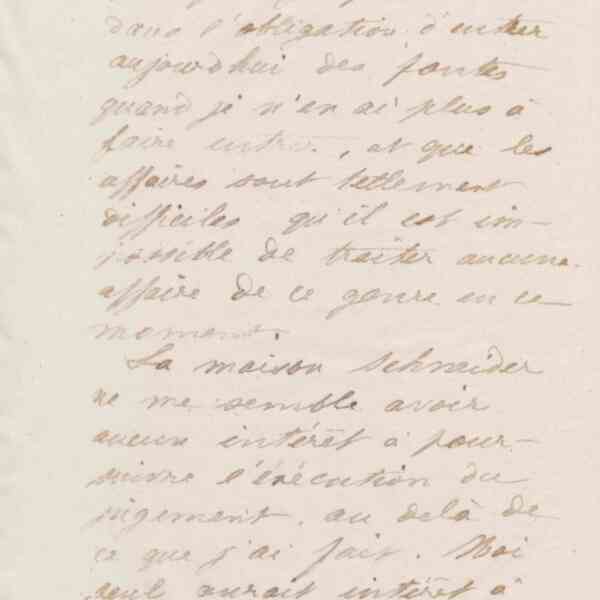 dans l'obligation d'entrer
aujourd'hui des fontes
quand je n'en ai plus à
faire entrer, et que les
affaires sont tellement
difficiles qu'il est im-
possible de traiter aucune
affaire de ce genre en ce
moment.
La maison Schneider
ne me semble avoir
aucun intérêt à pour-
suivre l'exécution du
jugement, au delà de
ce que j'ai fait. Moi
seul aurait intérêt à